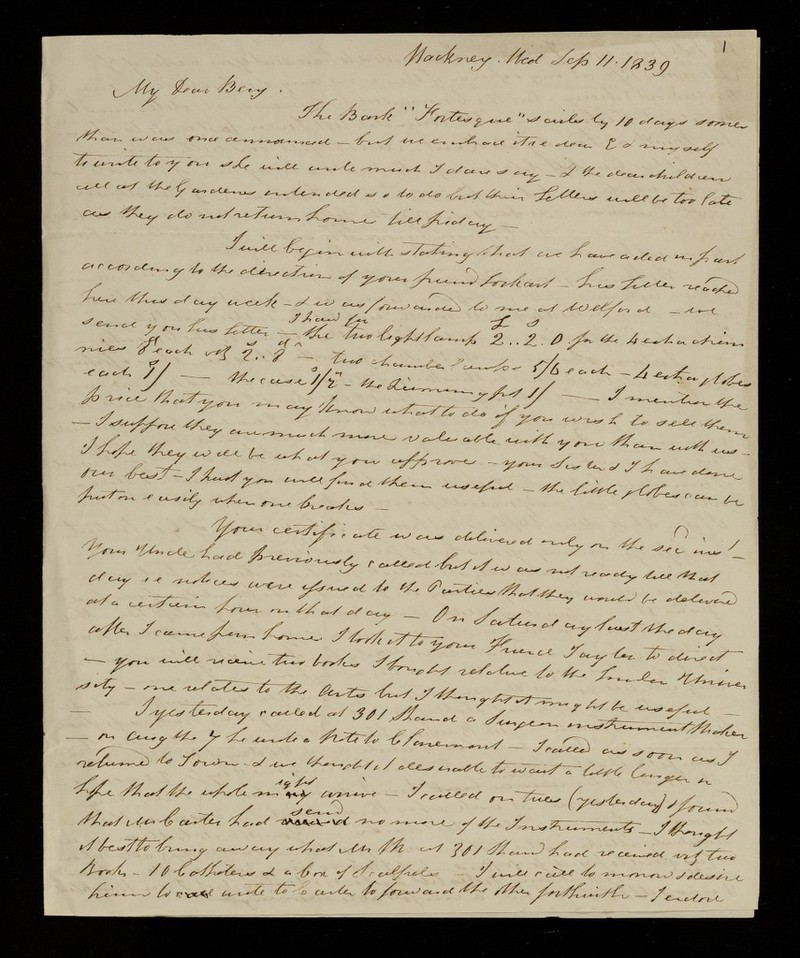 1
Hackney. Wed Sep 11. 1839
My Dear Benj.
The Bark "Fortesque" sails by 10 days sooner
than was once announced — but we embrace it & dear E & myself
to write to you she will write much I dare say — & the dear children
all at the Gardens intended so to do but their Letters will be too late
as they do not return home till friday —
I will begin with stating that we have acted in part
according to the direction of your friend Lockart — his Letter reached
here this day week — & was forwarded to me at Welford — we
send you his letter — I have for the two light Lamps £2..2..0 for the
each — two chamber 5/6 each —
each 1/ — the case 1/ — the 1/ — I mention the
price that you may know what to do if you wish to sell them
— I suppose they are much more valuable with you than with us —
I hope they will be what you approve — your Sister & I have done
our best — I trust you will find them useful — the little globes can be
put on easily when one breaks —
Your certificate was delivered only on the sec inst —
Your Uncle had previously called but it was not ready till that
day i.e notices were issued to the Parties that they would be delivered
at a certain hour on that day — On Saturday last the day
after I came from home I took it to your Friend Taylor to direct
— you will receive two books I bought relative to the London Univer
sity — one relates to the Arts but I thought it might be useful —
— I yesterday called at 301 Strand a Surgeon instrument Maker
— on Aug the 7 he wrote a Note to Claremont — I called as soon as I
returned to Town — & we thought it desirable to wait a little longer in
hope that the whole might arrive — I called on tues (yesterday) & found
that Mr Carter had send no more of the Instruments — I thought
it best to bring away what Mr at 301 Strand had received viz two
Books — 10 Catheters & a box of Scalpels — I will call to morrow & desire
him to write to Carter to forward the other forthwith — I enclose